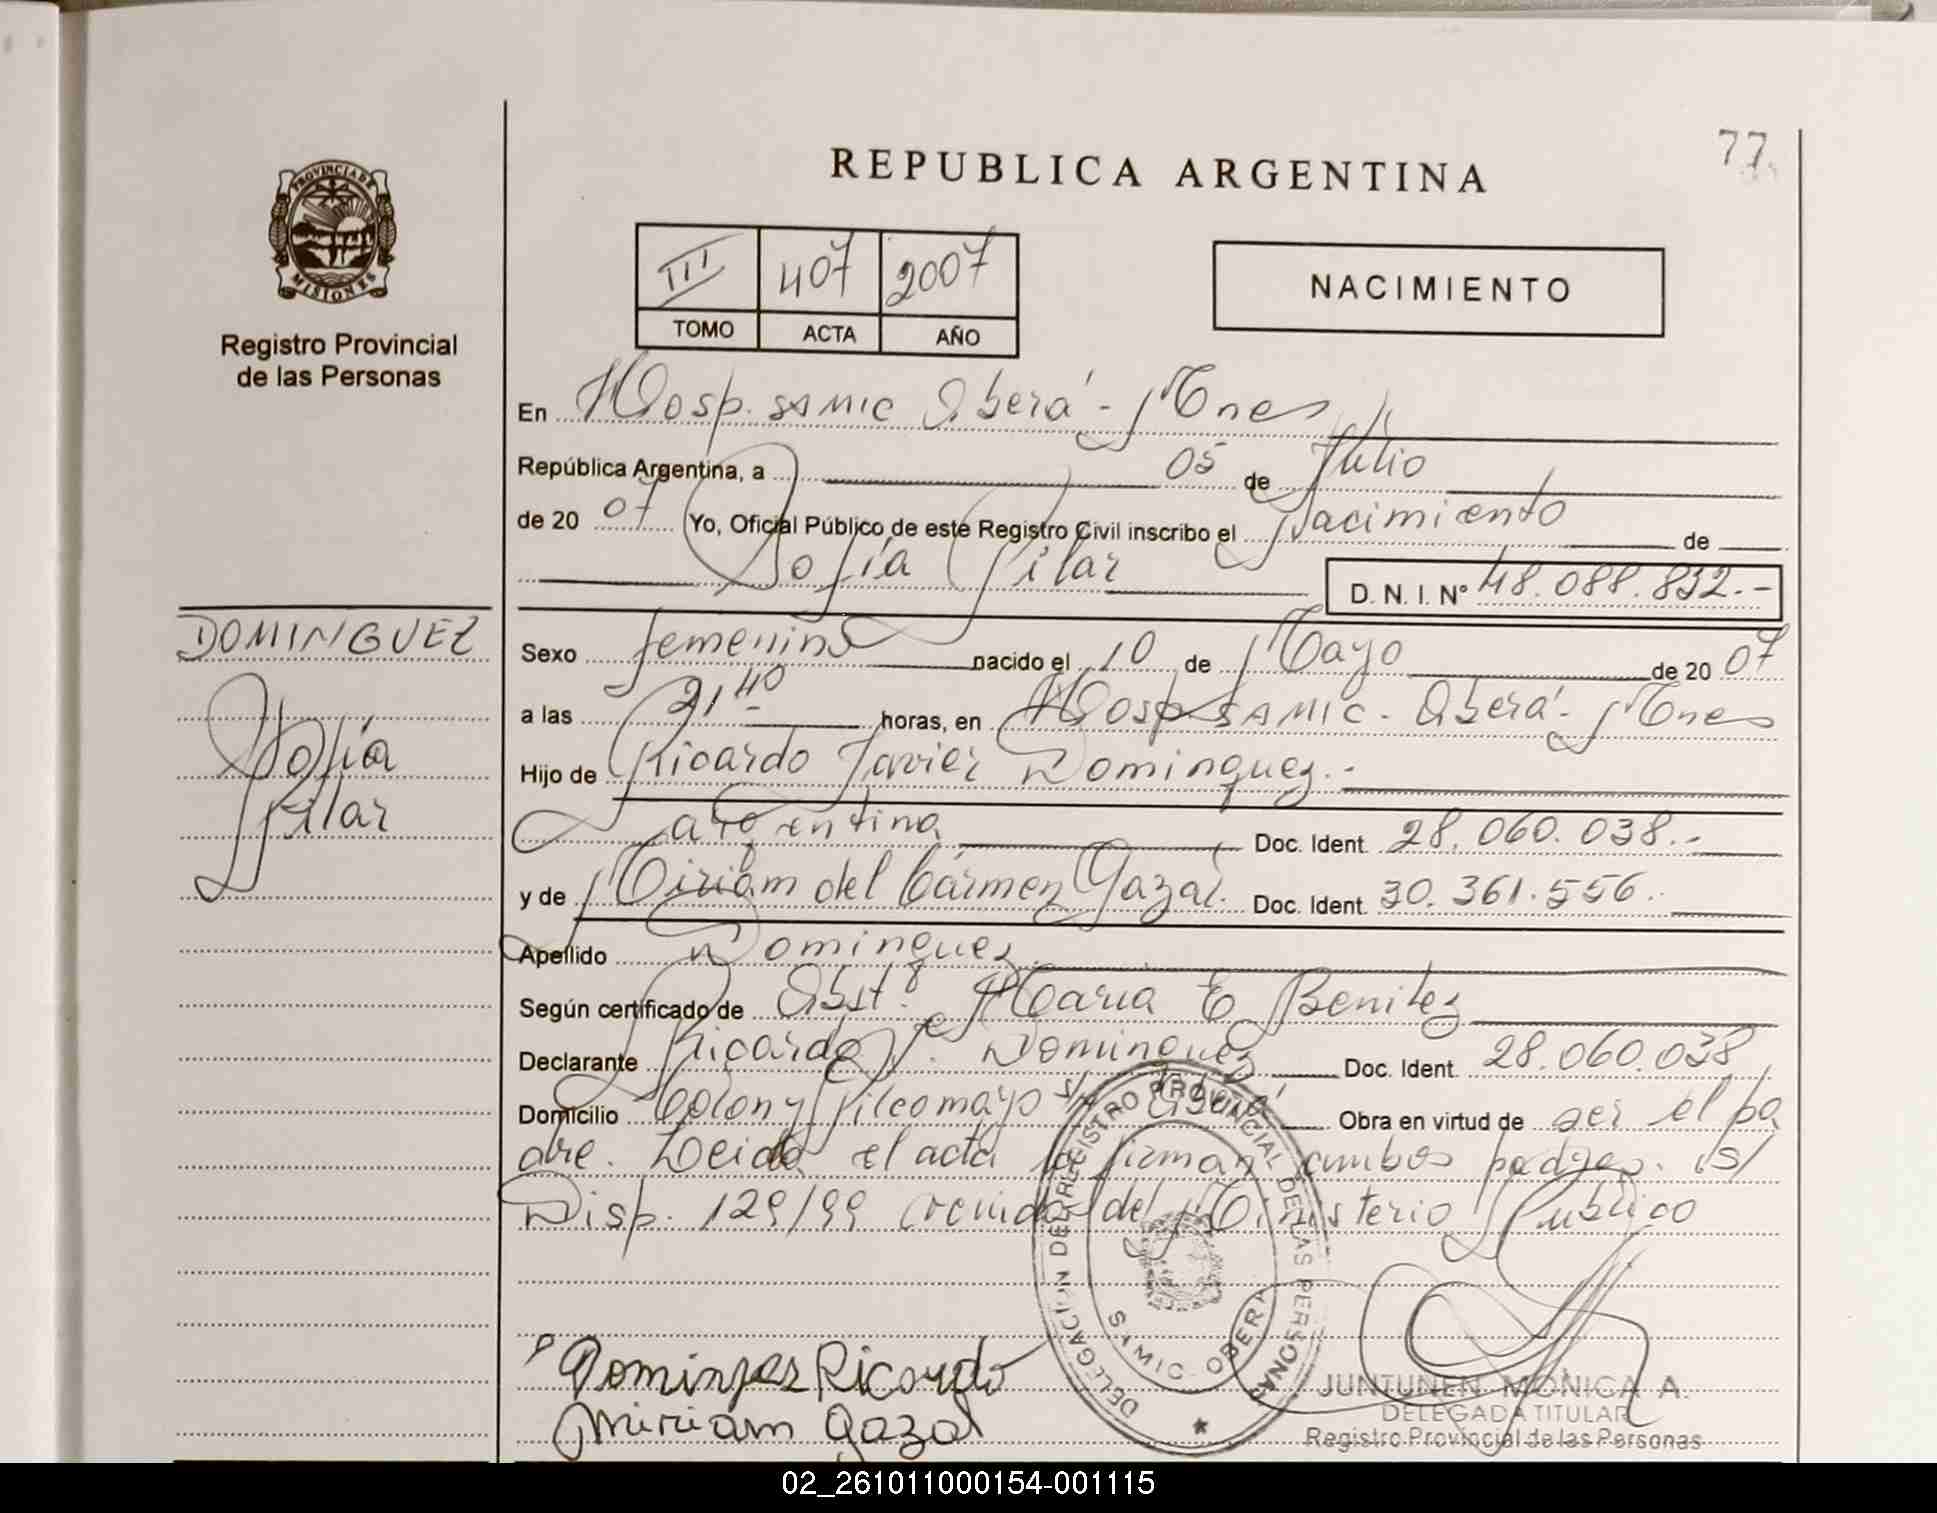 77
REPUBLICA ARGENTINA
PROVINCIA DE MISIONES
Registro Provincial
de las Personas
III 407 2007
TOMO ACTA AÑO
NACIMIENTO
En Hosp. SAMIC Oberá - Mnes
República Argentina, a 05 de Julio
de 20 07 Yo, Oficial Público de este Registro Civil inscribo el Nacimiento de
Sofía Pilar D. N. I. Nº 48.088.832.-
DOMINGUEZ
Sofía
Pilar
Sexo femenino nacido el 10 de Mayo de 20 07
a las 21 40 horas, en Hosp SAMIC - Oberá - Mnes
Hijo de Ricardo Javier Dominguez.-
argentina Doc. Ident. 28.060.038.-
y de Miriam del Cármen Gazal. Doc. Ident. 30.361.556.
Apellido Dominguez
Según certificado de Obst. María E Benitez
Declarante Ricardo J. Dominguez Doc. Ident. 28.060.038
Domicilio Colon y Pilcomayo s/n Oberá Obra en virtud de ser el pa
dre. Leida el acta la firman ambos padres. s/
Disp. 129/99 del Ministerio Publico
Dominguez Ricardo
Miriam Gazal
DELEGACION DEL REGISTRO PROVINCIAL DE LAS PERSONAS
SAMIC - OBERA
JUNTUNEN MONICA A.
DELEGADA TITULAR
Registro Provincial de las Personas
02_261011000154-001115